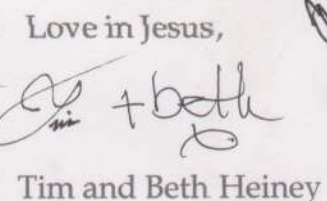 Love in Jesus,
Tim + beth
Tim and Beth Heiney